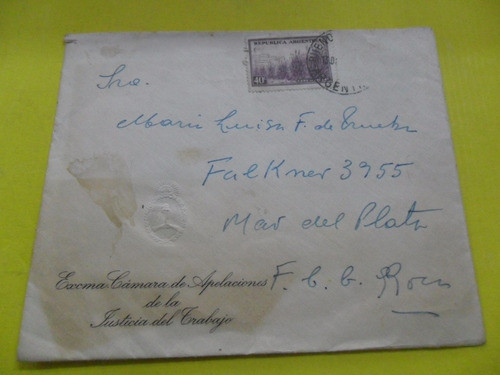 REPUBLICA ARGENTINA
40c
BUENO
ARGENTIN
Sra.
Maria Luisa F. de
Falkner 3955
Mar del Plata
F. C. G. Roca
Excma Cámara de Apelaciones
de la
Justicia del Trabajo